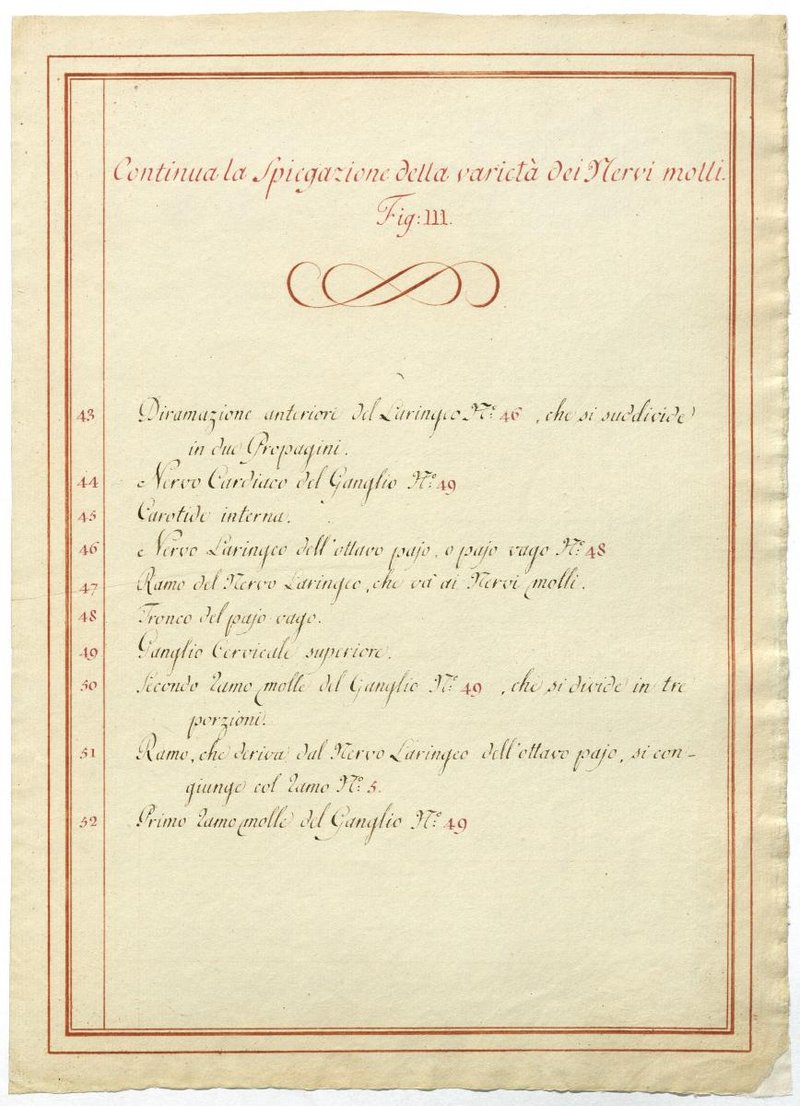 Continua la Spiegazione della varietà dei Nervi molli.
Fig: III.
43 Diramazione anteriore del Laringeo N.º 46, che si suddivide
in due Propagini.
44 Nervo Cardiaco del Ganglio N.º 49
45 Carotide interna.
46 Nervo Laringeo dell'ottavo pajo, o pajo vago N.º 48
47 Ramo del Nervo Laringeo, che và ai Nervi molli.
48 Tronco del pajo vago.
49 Ganglio Cervicale superiore.
50 Secondo ramo molle del Ganglio N.º 49, che si divide in tre
porzioni.
51 Ramo, che deriva dal Nervo Laringeo dell'ottavo pajo, si con-
giunge col ramo N.º 5.
52 Primo ramo molle del Ganglio N.º 49